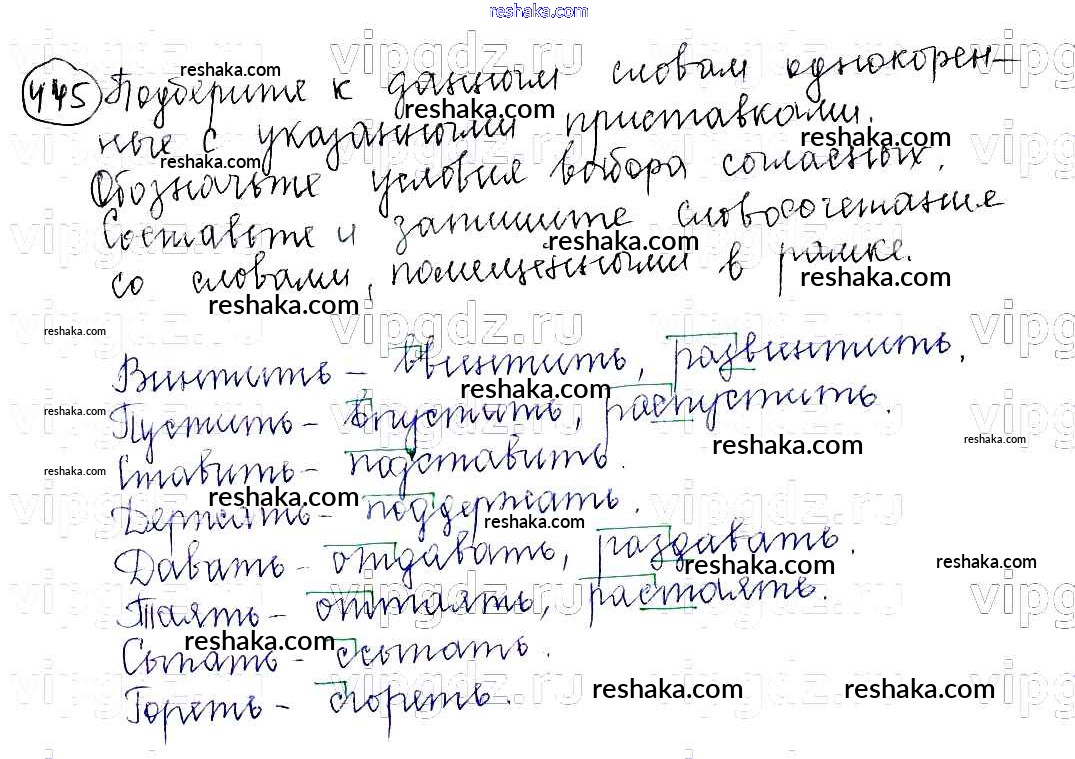 reshaka.com
445 Подберите к данным словам однокорен-
ные с указанными приставками.
Обозначьте условия выбора согласных.
Составьте и запишите словосочетания
со словами, помещенными в рамке.
Винтить - ввинтить, развинтить,
Пустить - впустить, распустить.
Ставить - подставить.
Держать - поддержать.
Давать - отдавать, раздавать.
Таять - оттаять, растаять.
Сыпать - ссыпать.
Гореть - сгореть.